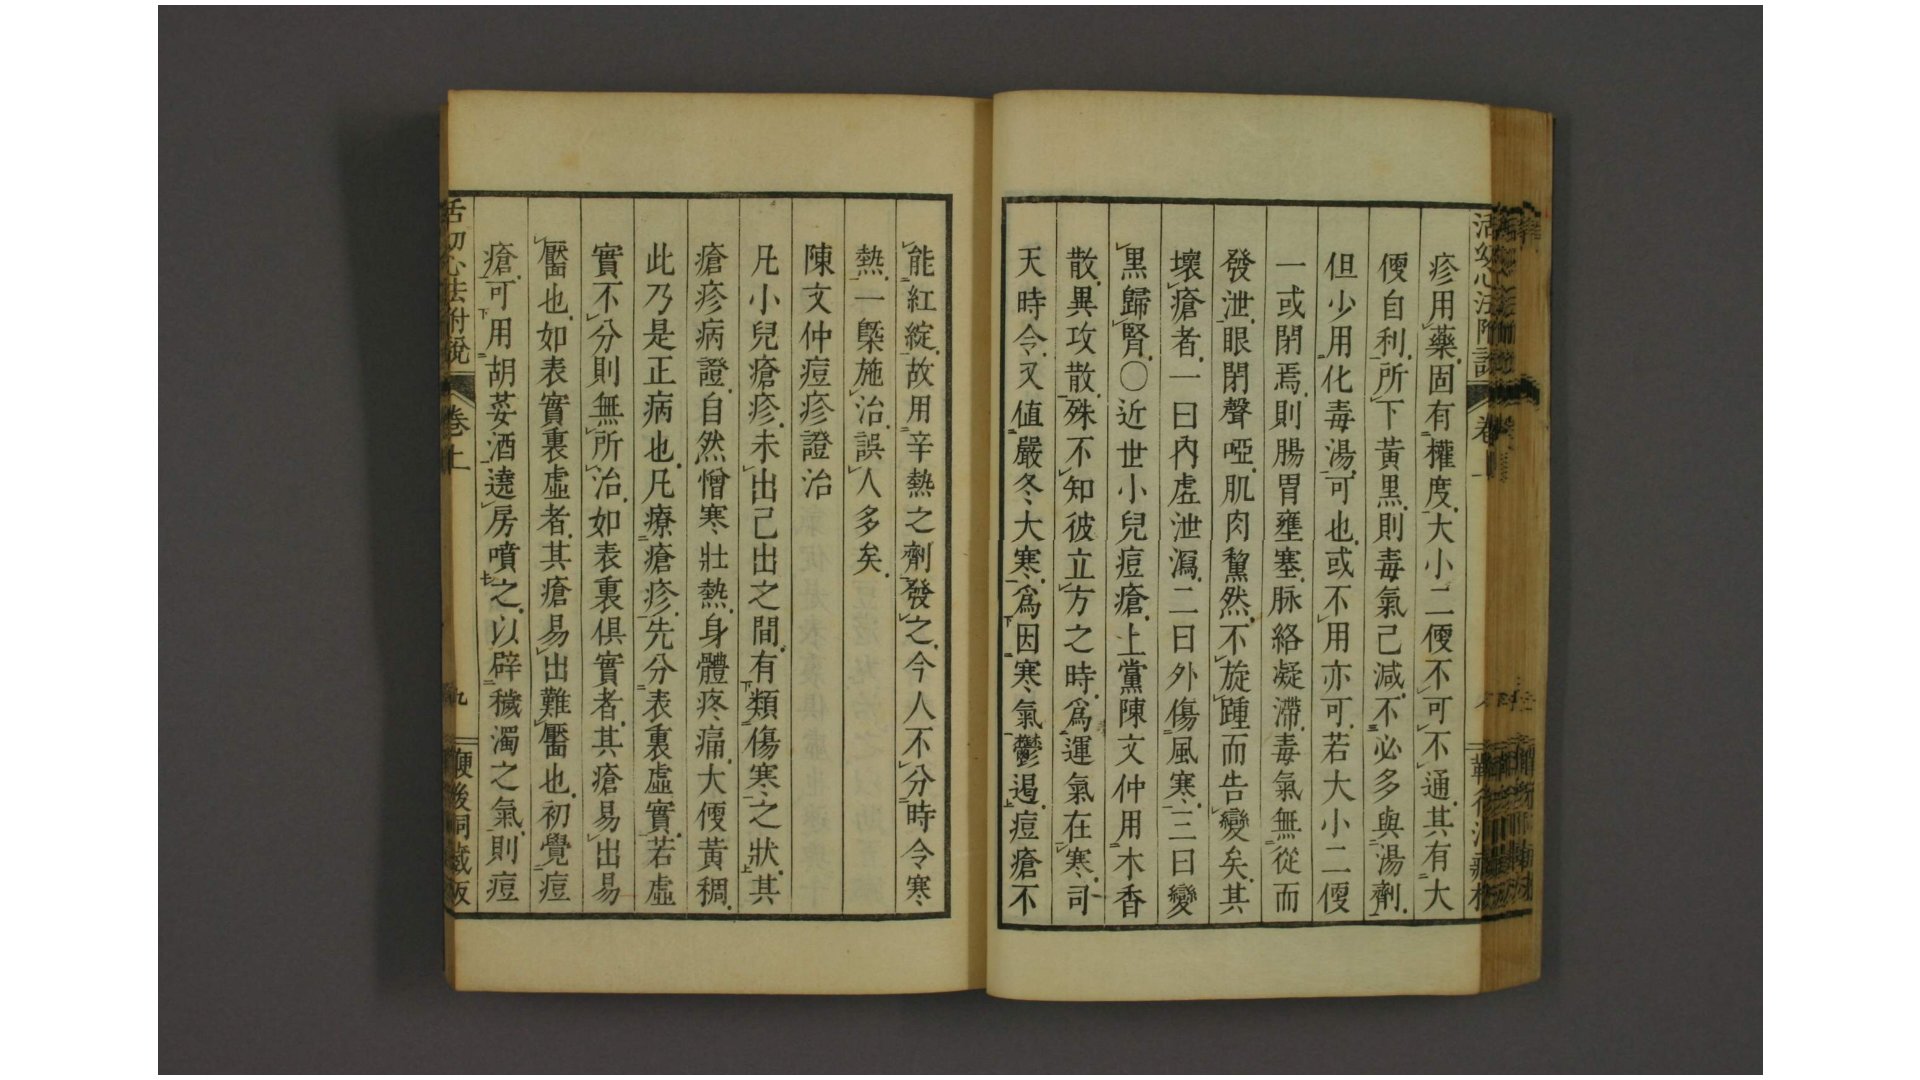 疹用藥固有權度大小二便不可不通其有大
便自利所下黃黑則毒氣已減不必多與湯劑
但少用化毒湯可也或不用亦可若大小二便
一或閉焉則腸胃壅塞脉絡凝滯毒氣無從而
發泄眼閉聲啞肌肉黧然不旋踵而告變矣其
壞瘡者一曰內虛泄瀉二曰外傷風寒三曰變
黑歸腎○近世小兒痘瘡上黨陳文仲用木香
散異攻散殊不知彼立方之時爲運氣在寒司
天時令又値嚴冬大寒爲因寒氣鬱遏痘瘡不
能紅綻故用辛熱之劑發之今人不分時令寒
熱一槩施治誤人多矣
陳文仲痘疹證治
凡小兒瘡疹未出已出之間有類傷寒之狀其
瘡疹病證自然憎寒壯熱身體疼痛大便黃稠
此乃是正病也凡療瘡疹先分表裏虛實若虛
實不分則無所治如表裏俱實者其瘡易出易
靨也如表實裏虛者其瘡易出難靨也初覺痘
瘡可用胡荽酒遶房噴之以辟穢濁之氣則痘
活幼心法附說 卷上 九 便後詞藏板